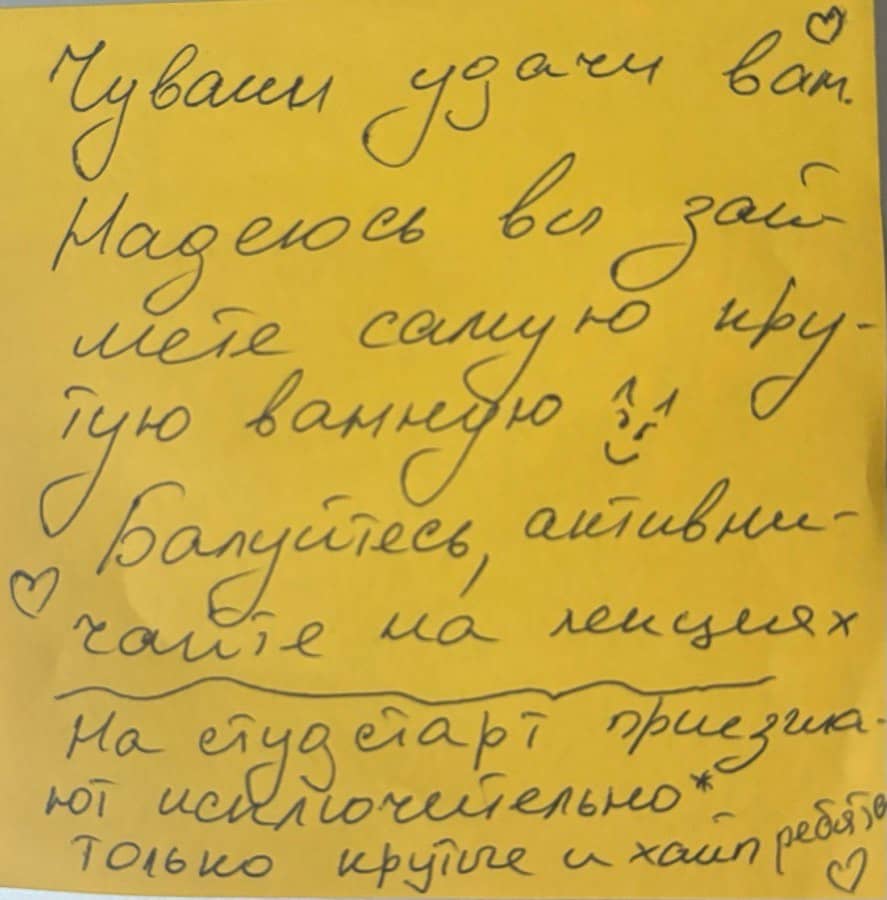 Чуваши удачи вам.
Надеюсь вы зай-
мете самую кру-
тую ванную
Балуйтесь, активни-
чайте на лекциях
На студстарт приезжа-
ют исключительно*
только крутые и хайп ребята